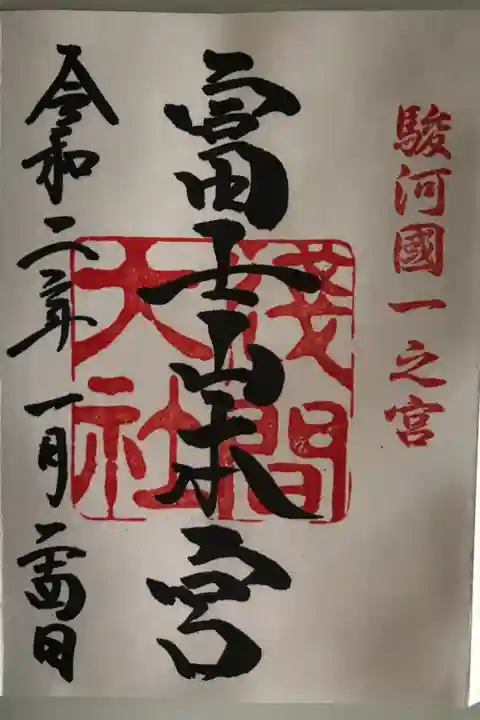 駿河國一之宮
富士山本宮
淺間
大社
令和二年一月日